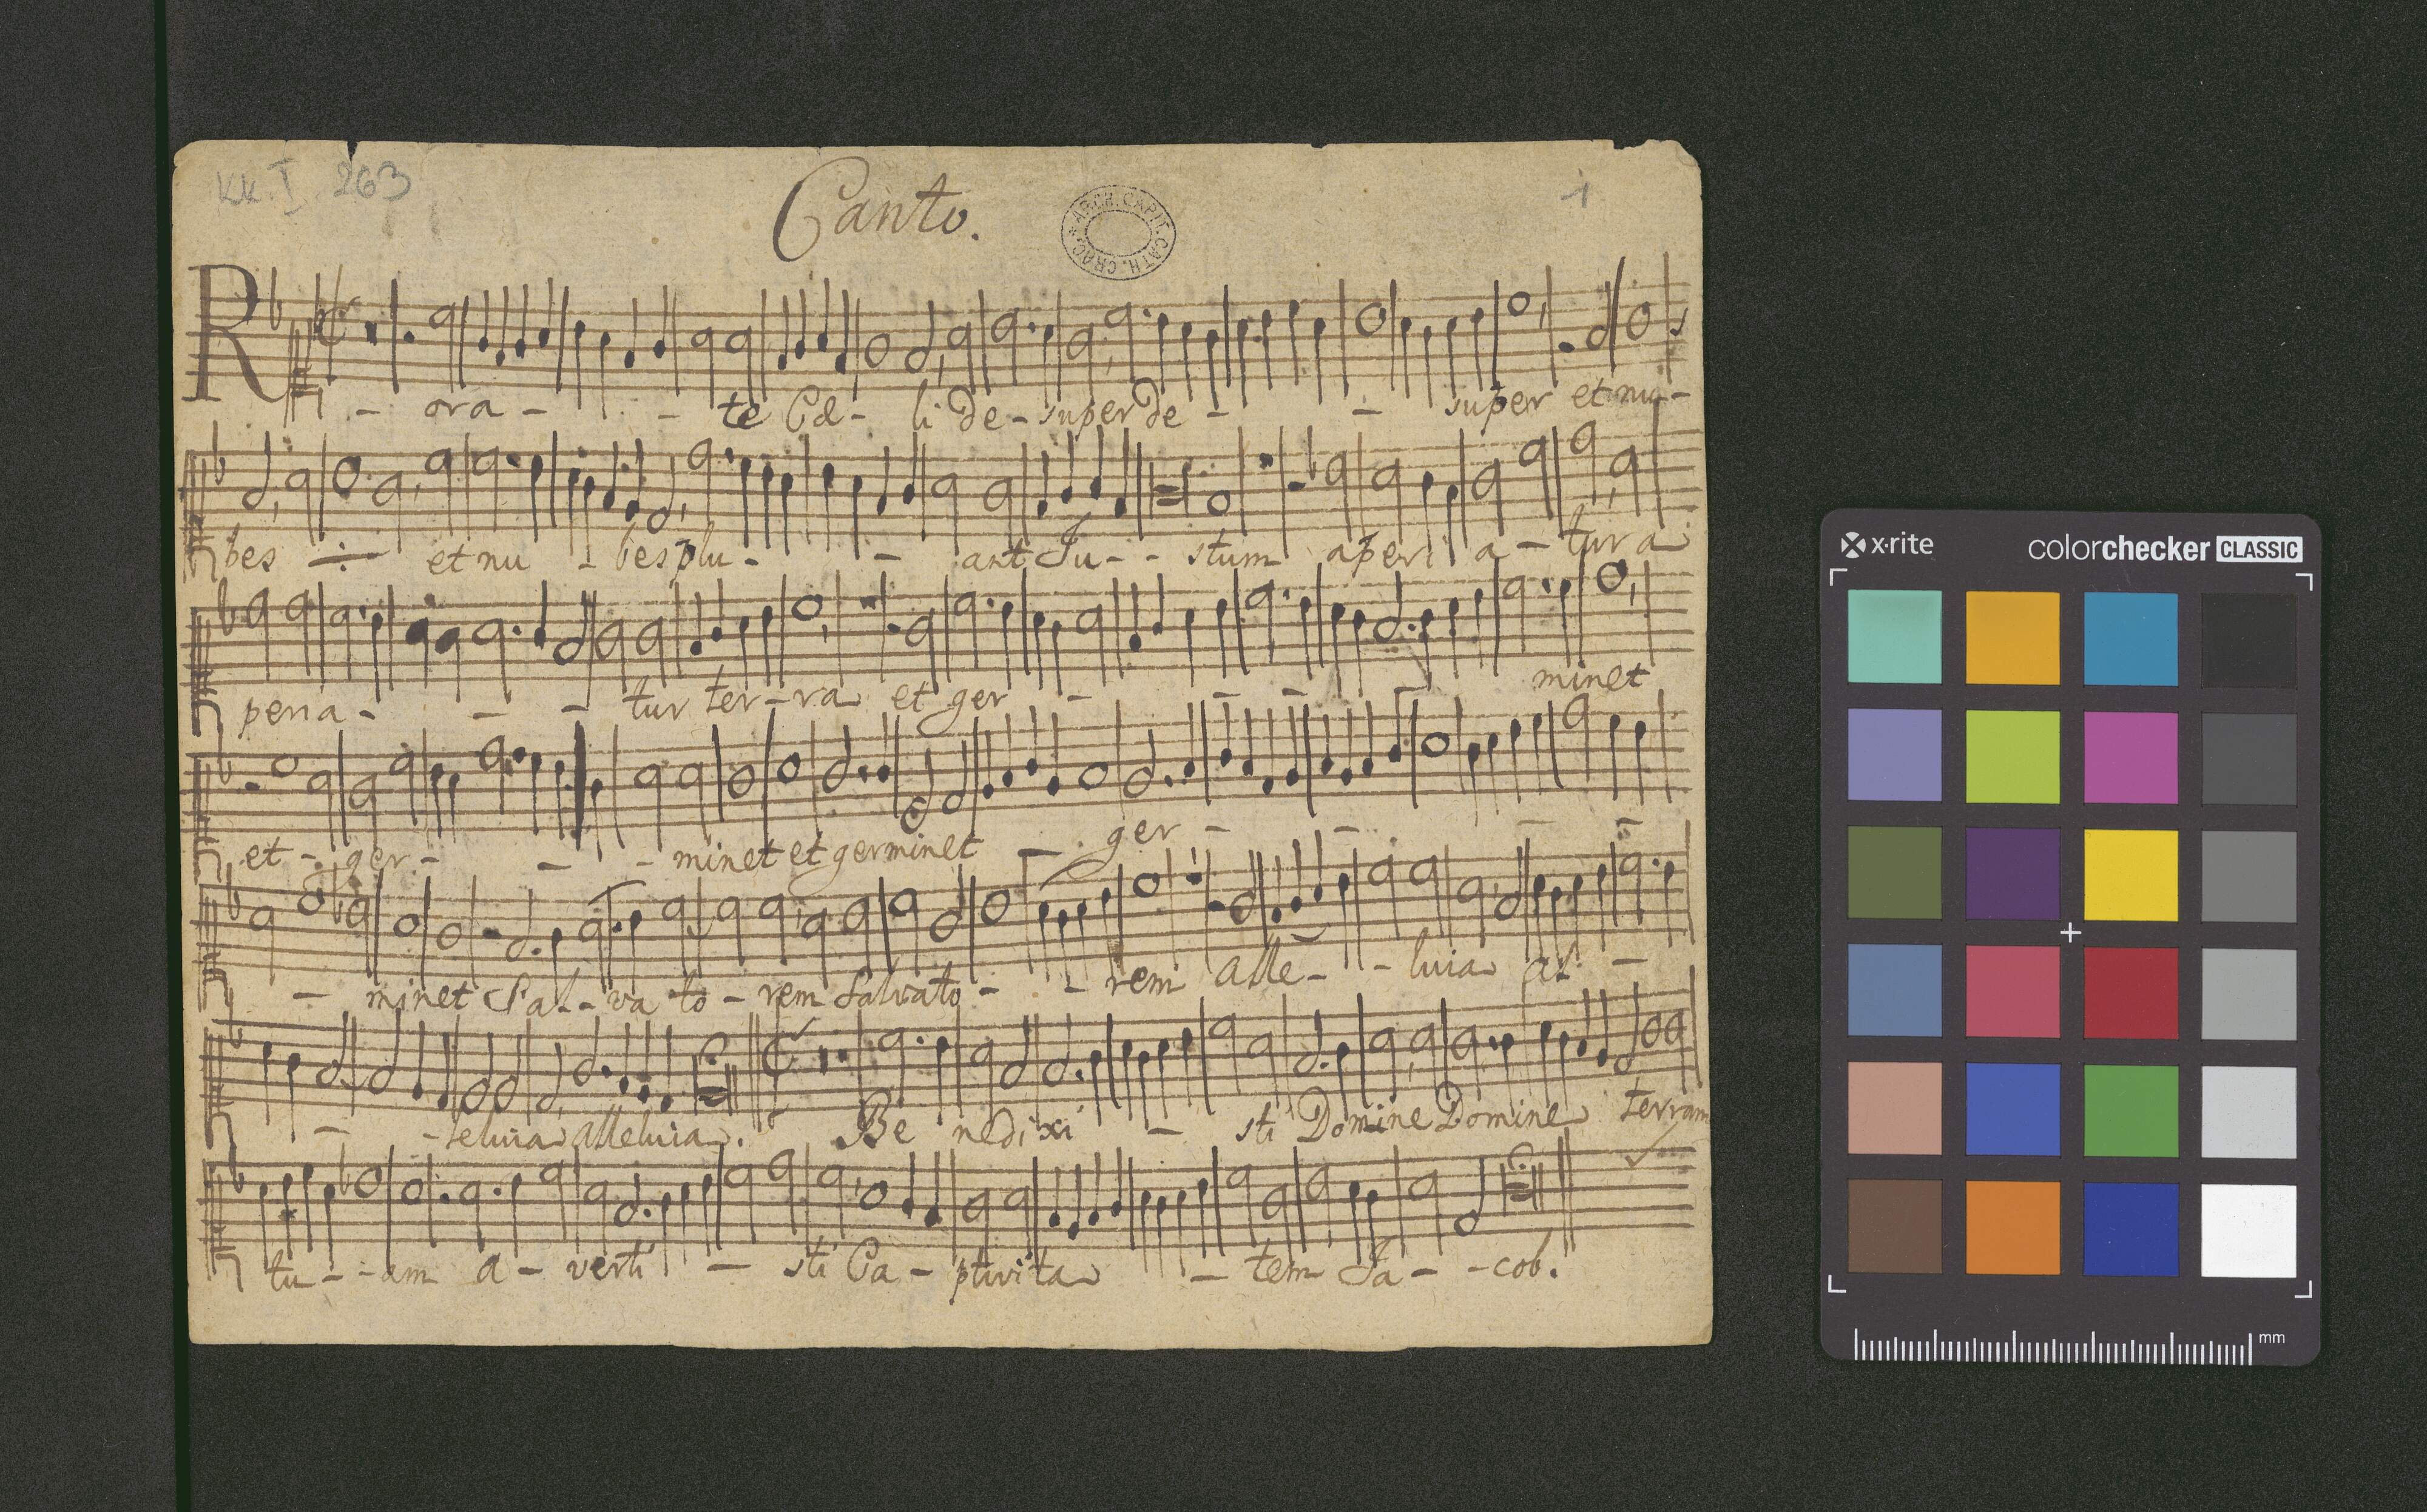 KK. I. 263
Canto.
ARCH. CAPIT. CATH. CRAC.
1
R - ora - - te Cæ - li de - super de - - super et nu -
bes ÷ et nu - bes plu - - ant Ju - - stum aperi a - tur a
peria - - - tur ter - ra et ger - - - - minet
et - ger - - - minet et germinet - ger - - - -
- minet Sal - - va to - rem Salvato - - rem alle - - luia al - -
- - leluia alleluia. Be nedi xi - sti Domine Domine terram
tu - - am a - verti - sti Ca - ptivita - tem Ja - - cob.
x·rite
colorchecker CLASSIC
mm